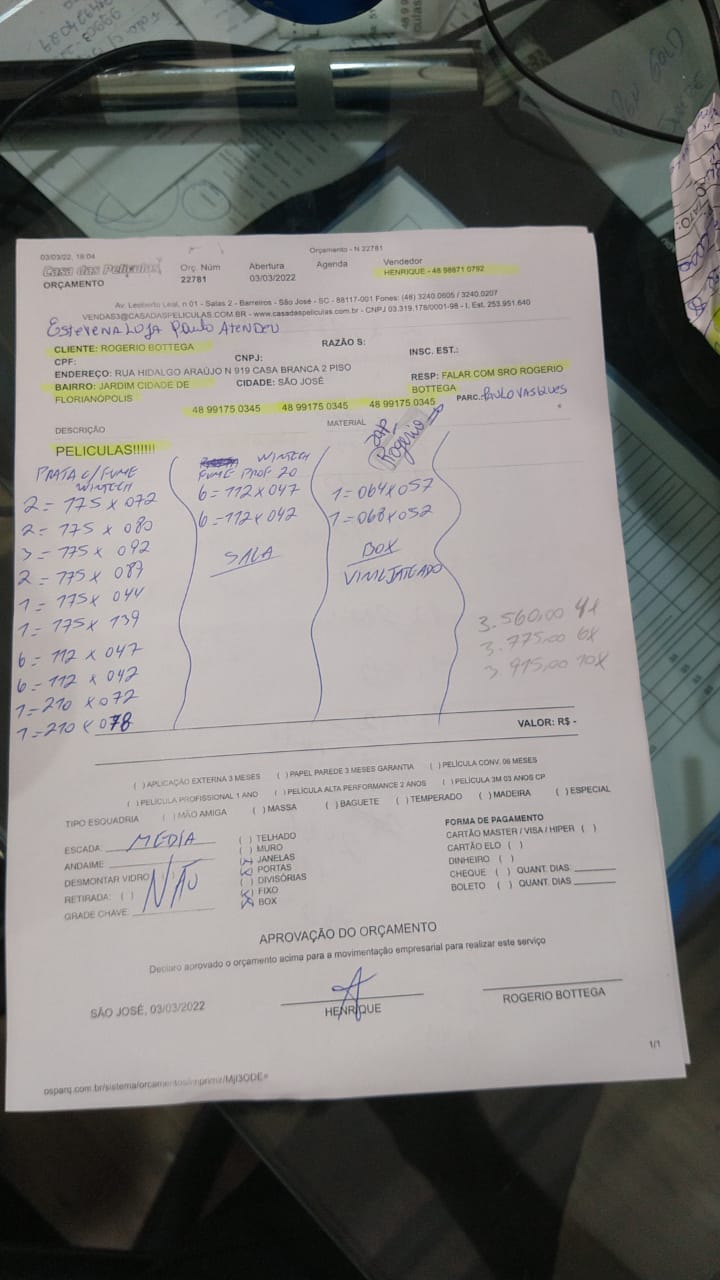 03/03/22, 18:04
Orçamento - N 22781
Casa das Películas
ORÇAMENTO
Orç. Núm
22781
Abertura
03/03/2022
Agenda
Vendedor
HENRIQUE - 48 98871 0792
Av. Leoberto Leal, n 01 - Salas 2 - Barreiros - São José - SC - 88117-001 Fones: (48) 3240.0605 / 3240.0207
VENDAS3@CASADASPELICULAS.COM.BR - www.casadaspeliculas.com.br - CNPJ 03.319.178/0001-98 - I. Est. 253.951.640
ESTEVE NA LOJA PAULO ATENDEU
CLIENTE: ROGERIO BOTTEGA
RAZÃO S:
CPF:
CNPJ:
INSC. EST.:
ENDEREÇO: RUA HIDALGO ARAÚJO N 919 CASA BRANCA 2 PISO
BAIRRO: JARDIM CIDADE DE
FLORIANÓPOLIS
CIDADE: SÃO JOSÉ
RESP: FALAR COM SRO ROGERIO
BOTTEGA
48 99175 0345 48 99175 0345 48 99175 0345
PARC.: PAULO VASQUES
DESCRIÇÃO
MATERIAL
PELICULAS!!!!!!
Rogério
PRATA C/ FUME
WINTECH
2 = 175 x 072
2 = 175 x 080
3 = 775 x 092
2 = 775 x 087
1 = 775 x 044
1 = 175 x 139
6 = 112 x 047
6 = 112 x 042
1 = 210 x 072
1 = 210 x 078
WINTECH
FUME PROF 20
6 = 112 x 047
6 = 112 x 042
SALA
1 = 064 x 057
1 = 068 x 052
BOX
VINIL JATEADO
3.560,00 4x
3.775,00 6x
3.915,00 10x
VALOR: R$ -
( ) APLICAÇÃO EXTERNA 3 MESES ( ) PAPEL PAREDE 3 MESES GARANTIA ( ) PELÍCULA CONV. 06 MESES
( ) PELÍCULA PROFISSIONAL 1 ANO ( ) PELÍCULA ALTA PERFORMANCE 2 ANOS ( ) PELÍCULA 3M 03 ANOS CP
TIPO ESQUADRIA ( ) MÃO AMIGA ( ) MASSA ( ) BAGUETE ( ) TEMPERADO ( ) MADEIRA ( ) ESPECIAL
ESCADA: MEDIA
ANDAIME:
DESMONTAR VIDRO
RETIRADA: ( )
GRADE CHAVE:
NÃO
( ) TELHADO
( ) MURO
(x) JANELAS
(x) PORTAS
( ) DIVISÓRIAS
(x) FIXO
(x) BOX
FORMA DE PAGAMENTO
CARTÃO MASTER / VISA / HIPER ( )
CARTÃO ELO ( )
DINHEIRO ( )
CHEQUE ( ) QUANT. DIAS
BOLETO ( ) QUANT. DIAS
APROVAÇÃO DO ORÇAMENTO
Declaro aprovado o orçamento acima para a movimentação empresarial para realizar este serviço
SÃO JOSÉ, 03/03/2022
HENRIQUE
ROGERIO BOTTEGA
1/1
osparq.com.br/sistema/orcamentos/imprimir/MjI3ODE=